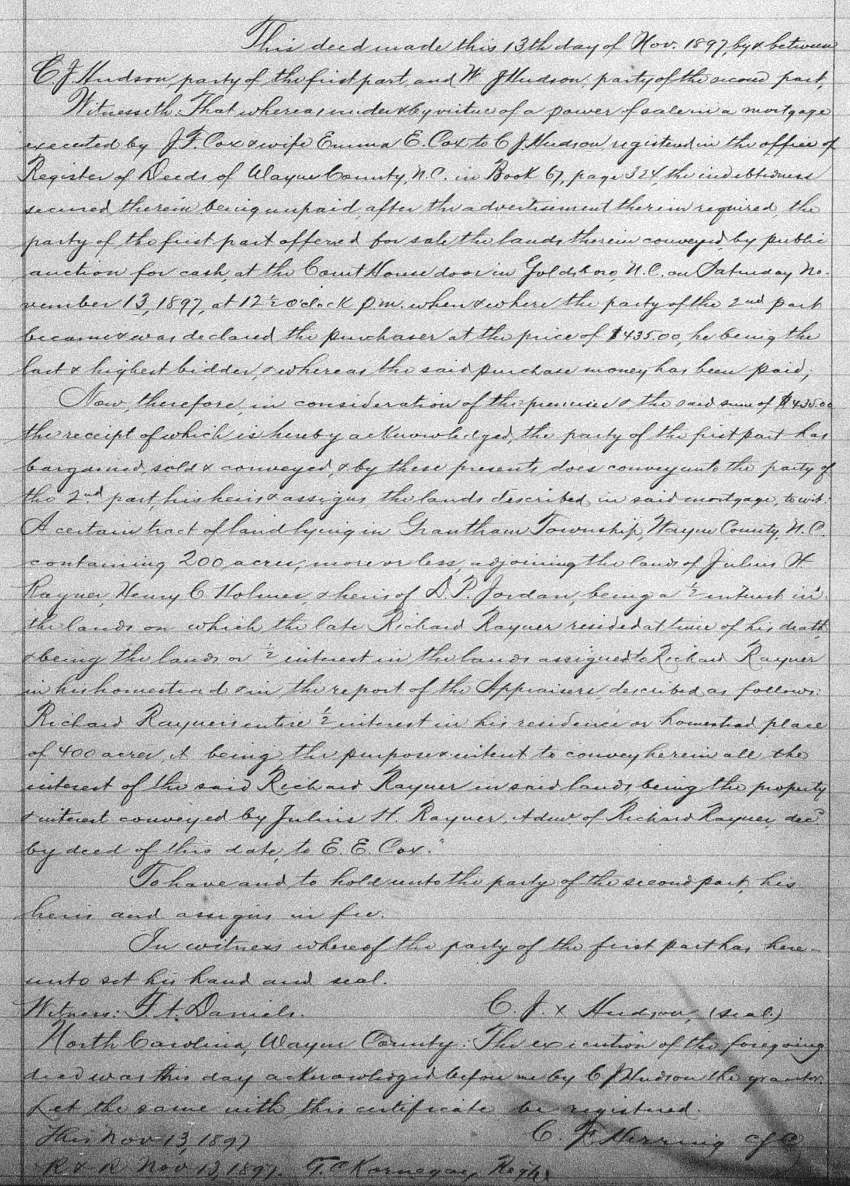 This deed made this 13th day of Nov. 1897, by & between
C. J. Hudson, party of the first part, and W. J. Hudson, party of the second part,
Witnesseth: That whereas under & by virtue of a power of sale in a mortgage
executed by J. F. Cox & wife Emma E. Cox to C. J. Hudson registered in the office of
Register of Deeds of Wayne County, N.C. in Book 67, page 324, the indebtedness
secured therein being unpaid, after the advertisement therein required, the
party of the first part offered for sale the lands therein conveyed by public
auction for cash, at the Court House door in Goldsboro, N.C. on Saturday No-
vember 13, 1897, at 12½ o'clock p.m. when & where the party of the 2nd part
became & was declared the purchaser at the price of $435.00, he being the
last & highest bidder, & whereas the said purchase money has been paid;
Now, therefore, in consideration of the premises & the said sum of $435.00
the receipt of which is hereby acknowledged, the party of the first part has
bargained, sold & conveyed, & by these presents does convey unto the party of
the 2nd part, his heirs & assigns the lands described in said mortgage, to wit:
A certain tract of land lying in Grantham Township, Wayne County, N.C.
containing 200 acres, more or less, adjoining the lands of Julius H.
Rayner, Henry C. Holmes, & heirs of D. P. Jordan, being a ½ interest in
the lands on which the late Richard Rayner resided at time of his death
& being the lands or ½ interest in the lands assigned to Richard Rayner
in his homestead & in the report of the Appraisers, described as follows:
Richard Rayner's entire ½ interest in his residence or homestead place
of 400 acres, it being the purpose & intent to convey herein all the
interest of the said Richard Rayner in said lands being the property
& interest conveyed by Julius H. Rayner, Admr. of Richard Rayner, decd.
by deed of this date, to E. E. Cox."
To have and to hold unto the party of the second part, his
heirs and assigns in fee.
In witness whereof the party of the first part has here-
unto set his hand and seal.
Witness: F. A. Daniels. C. J. x Hudson, (seal.)
North Carolina, Wayne County: The execution of the foregoing
deed was this day acknowledged before me by C. J. Hudson the grantor.
Let the same with this certificate be registered.
This Nov 13, 1897 C. F. Herring C.S.C.
R & R Nov 13, 1897. F. C. Kornegay, Regtr